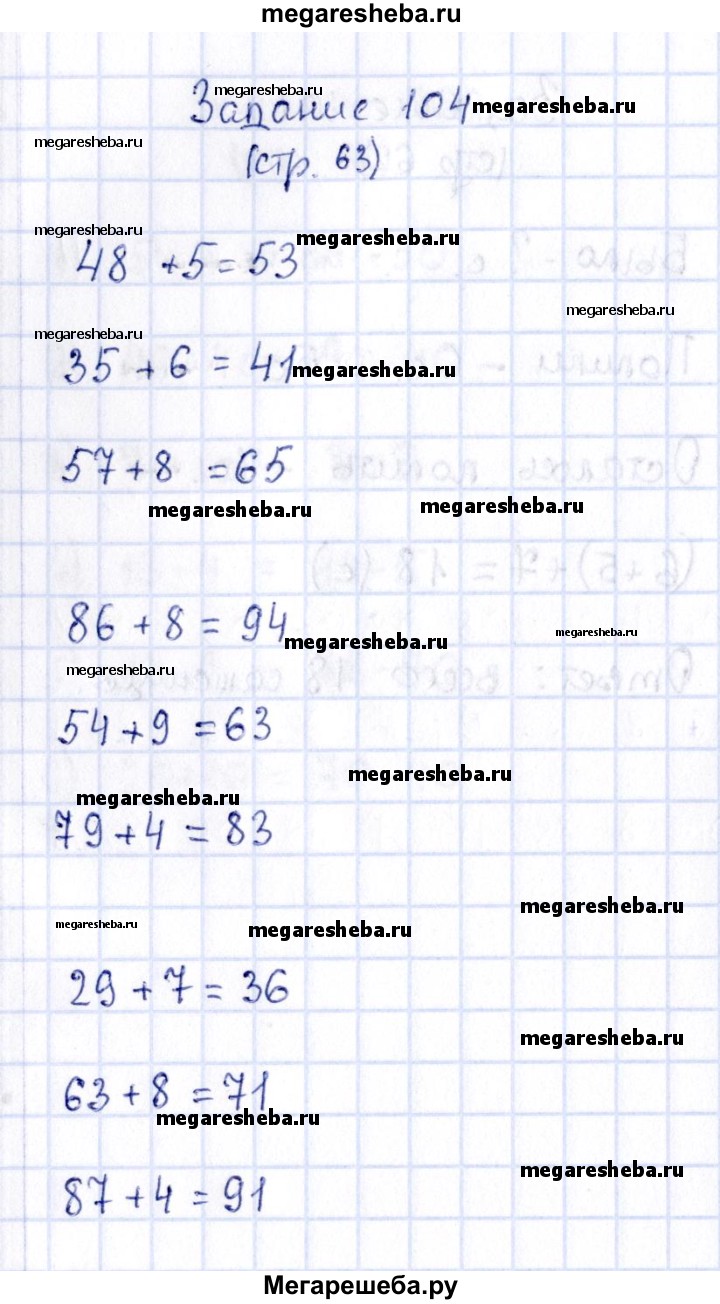 megaresheba.ru
megaresheba.ru
Задание 104 megaresheba.ru
megaresheba.ru
(стр. 63)
megaresheba.ru
megaresheba.ru
48 + 5 = 53
megaresheba.ru
megaresheba.ru
35 + 6 = 41 megaresheba.ru
57 + 8 = 65
megaresheba.ru megaresheba.ru
86 + 8 = 94
megaresheba.ru megaresheba.ru
megaresheba.ru
54 + 9 = 63
megaresheba.ru
megaresheba.ru
79 + 4 = 83
megaresheba.ru
megaresheba.ru megaresheba.ru
29 + 7 = 36
megaresheba.ru
63 + 8 = 71
megaresheba.ru
megaresheba.ru
87 + 4 = 91
Мегарешеба.ру